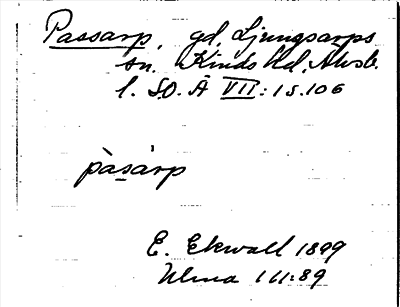 Passarp, gd, Ljungsarps
sn. Kinds hd, Älvsb.
l. SO. Ä VII:1 s. 106
pàsàrp
E. Ekwall 1899
Ulma 111:89